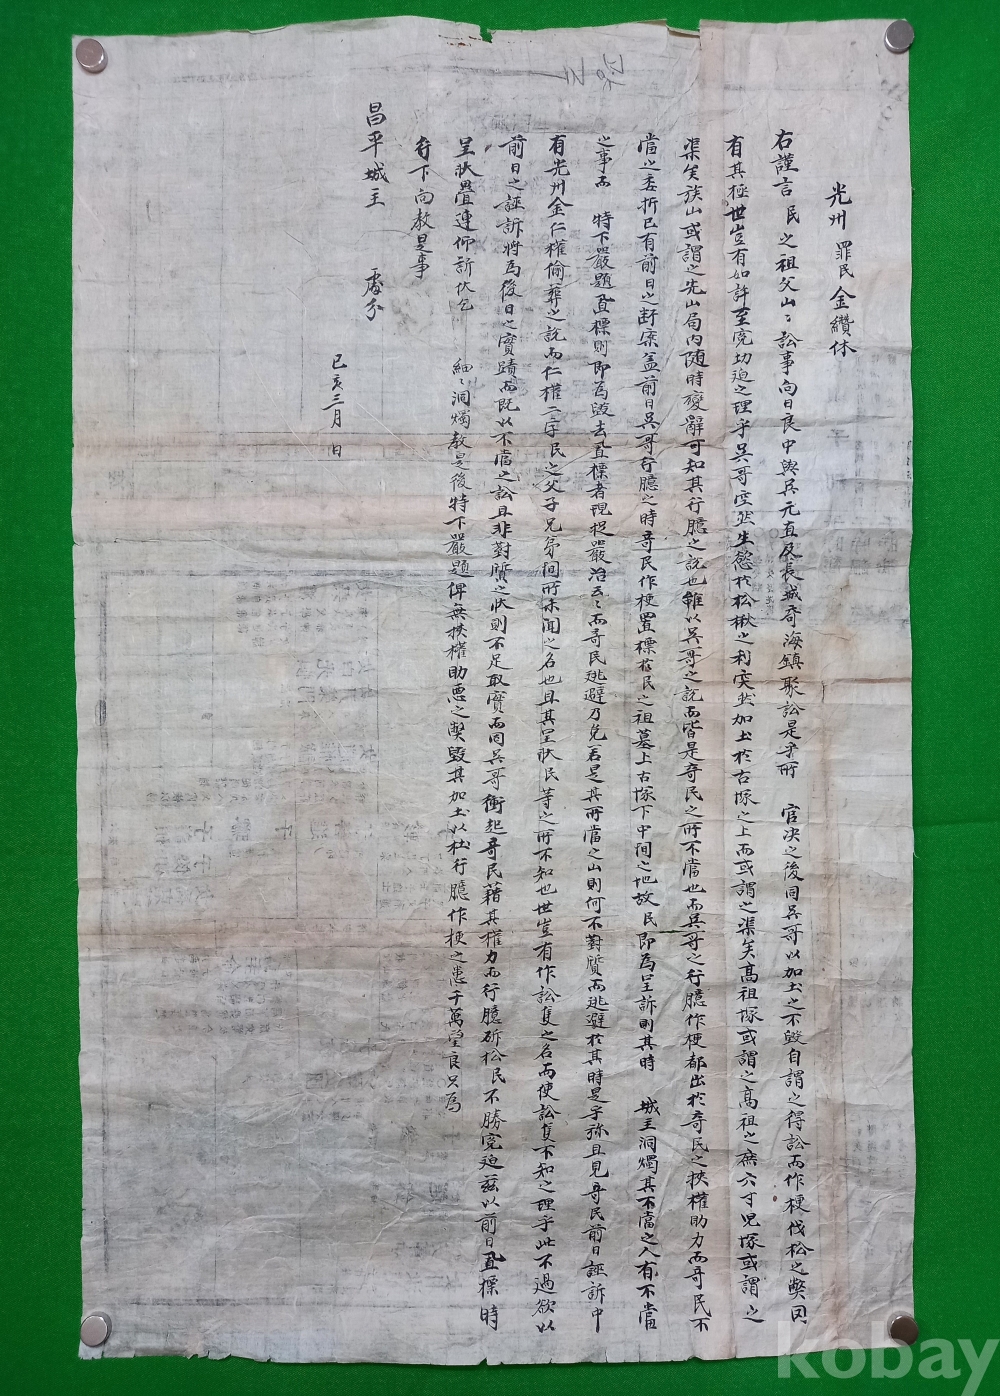 光州 罪民 金纘休
右謹言民之祖父山〻訟事向日良中與吳元直及長城奇海鎭聚訟是乎所 官决之後同吳哥以加土之不毁自謂之得訟而作梗伐松之弊罔
有其極世豈有如許至寃切迫之理乎吳哥空然生慾於松楸之利突然加土於古塚之上而或謂之渠矣高祖塚或謂之高祖之庶六寸兄塚或謂之
渠矣族山或謂之先山局內隨時變辭可知其行臆之說也雖以吳哥之說而皆是奇民之所不當也而吳哥之行臆作梗都出於奇民之挾權助力而奇民不
當之委折已有前日之訴案盖前日吳哥行臆之時奇民作梗置標於民之祖墓上古塚下中間之地故民即爲呈訴則其時 城主洞燭其不當之人有不當
之事而 特下嚴題置標則即爲毁去置標者現捉嚴治云〻而奇民逃避乃免若是其所當之山則何不對質而逃避於其時是乎旀且見奇民前日誣訴中
有光州金仁權偷葬之說而仁權二字民之父子兄弟間所未聞之名也且其呈狀民等之所不知也世豈有作訟隻之名而使訟隻不知之理乎此不過欲以
前日之誣訴將爲後日之實蹟而旣以不當之訟且非對質之狀則不足取實而同吳哥衝起奇民藉其權力而行臆斫松民不勝寃迫玆以前日置標時
呈狀疊連仰訴伏乞 細〻洞燭敎是後特下嚴題俾無挾權助惡之弊毁其加土以杜行臆作梗之患千萬望良只爲
行下向敎是事
昌平城主 處分
己亥三月 日
kobay